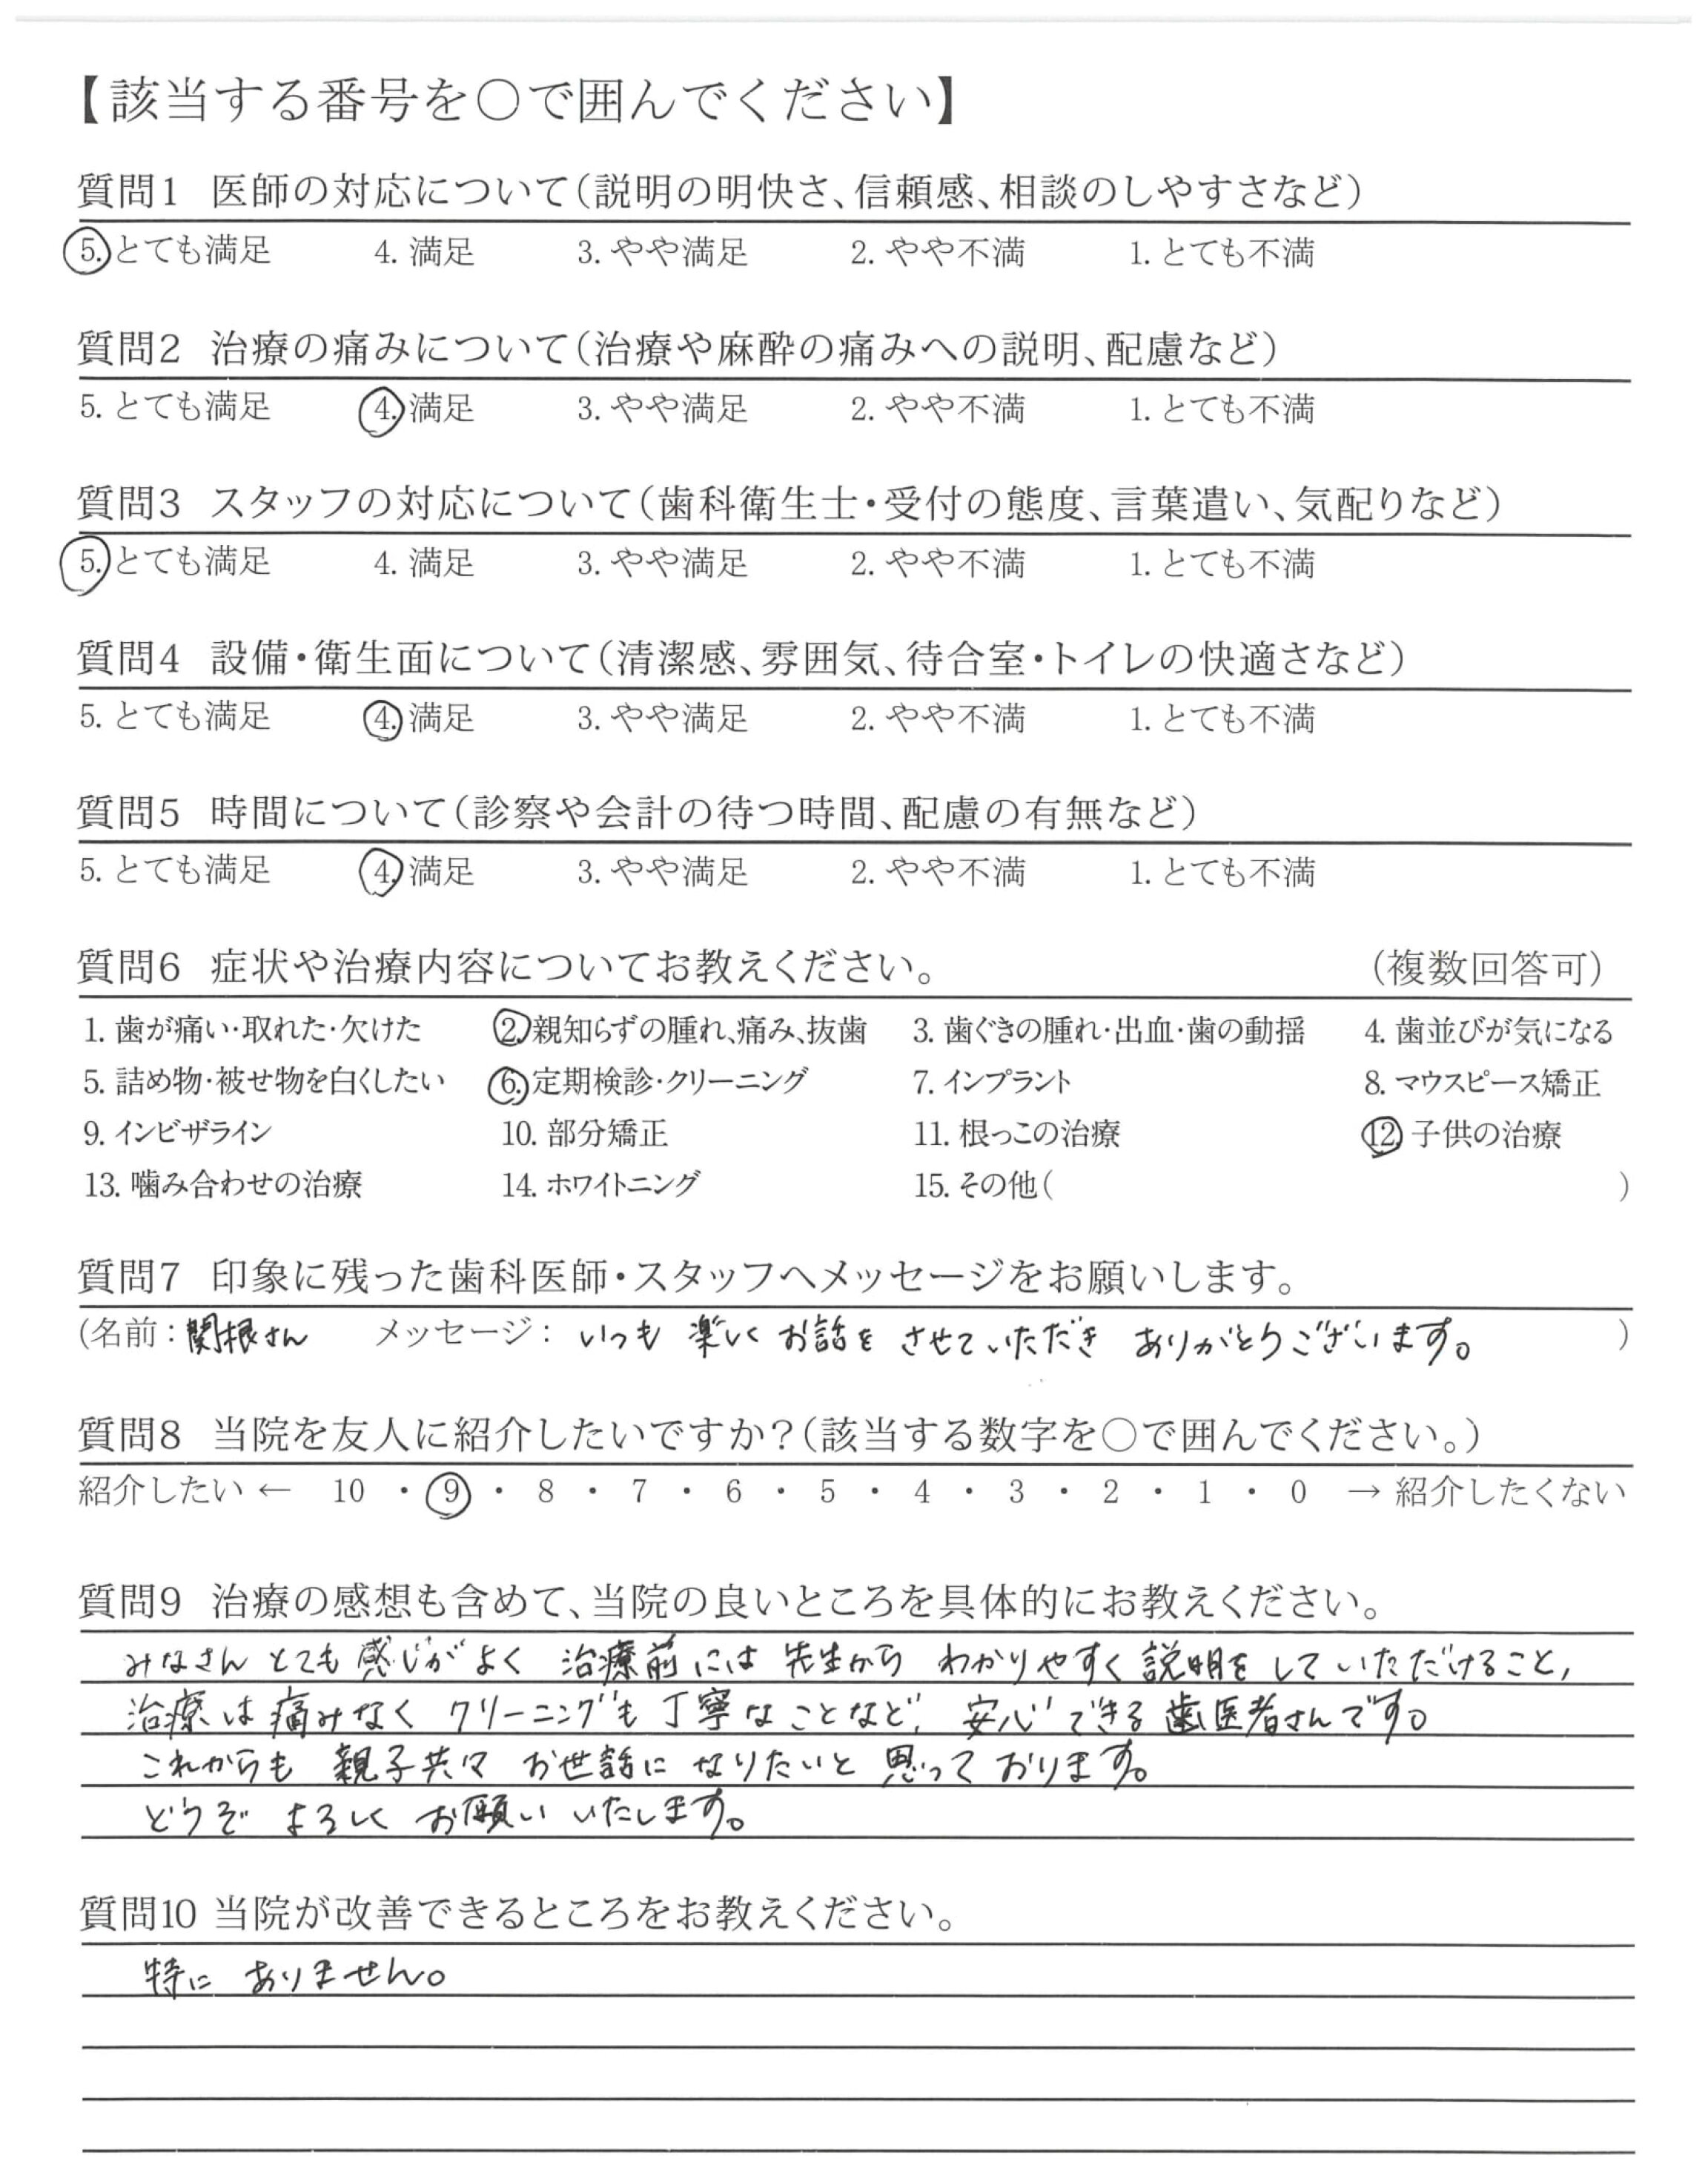 【該当する番号を〇で囲んでください】
質問1 医師の対応について(説明の明快さ、信頼感、相談のしやすさなど)
5. とても満足 4. 満足 3. やや満足 2. やや不満 1. とても不満
質問2 治療の痛みについて(治療や麻酔の痛みへの説明、配慮など)
5. とても満足 4. 満足 3. やや満足 2. やや不満 1. とても不満
質問3 スタッフの対応について(歯科衛生士・受付の態度、言葉遣い、気配りなど)
5. とても満足 4. 満足 3. やや満足 2. やや不満 1. とても不満
質問4 設備・衛生面について(清潔感、雰囲気、待合室・トイレの快適さなど)
5. とても満足 4. 満足 3. やや満足 2. やや不満 1. とても不満
質問5 時間について(診察や会計の待つ時間、配慮の有無など)
5. とても満足 4. 満足 3. やや満足 2. やや不満 1. とても不満
質問6 症状や治療内容についてお教えください。 (複数回答可)
1. 歯が痛い・取れた・欠けた 2. 親知らずの腫れ、痛み、抜歯 3. 歯ぐきの腫れ・出血・歯の動揺 4. 歯並びが気になる
5. 詰め物・被せ物を白くしたい 6. 定期検診・クリーニング 7. インプラント 8. マウスピース矯正
9. インビザライン 10. 部分矯正 11. 根っこの治療 12. 子供の治療
13. 噛み合わせの治療 14. ホワイトニング 15. その他( )
質問7 印象に残った歯科医師・スタッフへメッセージをお願いします。
(名前：関根さん メッセージ： いつも 楽しく お話を させていただき ありがとうございます。 )
質問8 当院を友人に紹介したいですか？(該当する数字を〇で囲んでください。)
紹介したい ← 10 ・ 9 ・ 8 ・ 7 ・ 6 ・ 5 ・ 4 ・ 3 ・ 2 ・ 1 ・ 0 → 紹介したくない
質問9 治療の感想も含めて、当院の良いところを具体的にお教えください。
みなさん とても 感じがよく 治療前には 先生から わかりやすく 説明をして いただけること,
治療は 痛みなく クリーニングも 丁寧な ことなど, 安心できる 歯医者さんです。
これからも 親子共々 お世話に なりたいと 思って おります。
どうぞ よろしく お願い いたします。
質問10 当院が改善できるところをお教えください。
特に ありません。